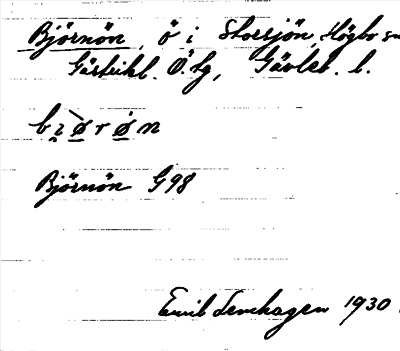 Björnön, ö i Storsjön, Högbo sn
Gästrikl. Ö. tg, Gävleb. l.
bi̯ø̀rø̇n
Björnön G98
Emil Lenhagen 1930.